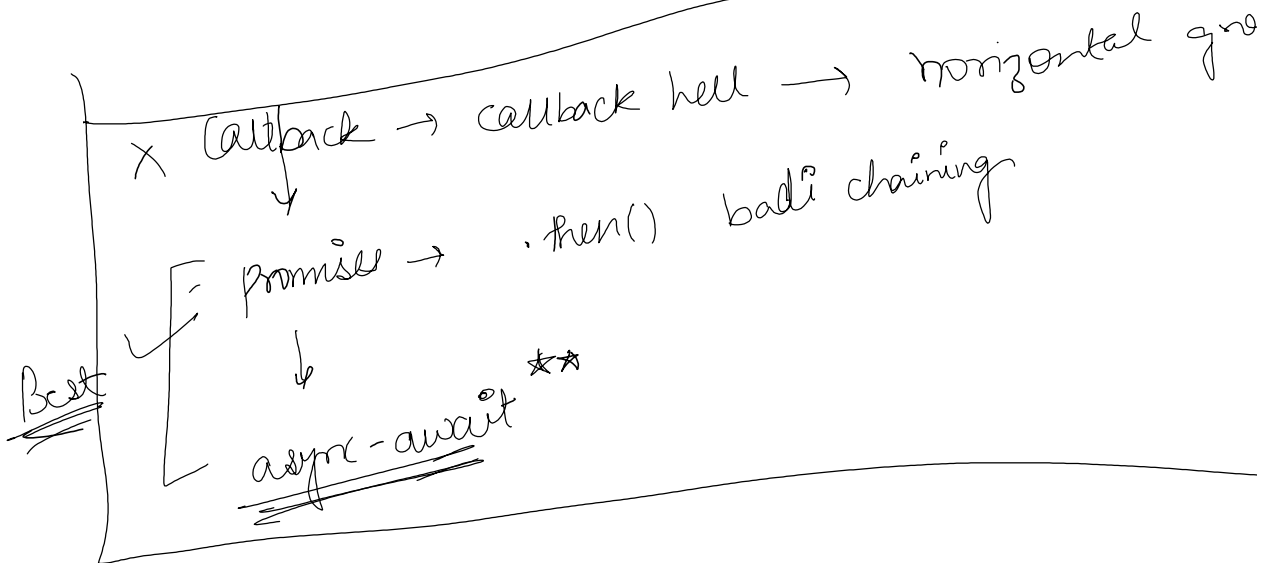 X Callback → callback hell → horizontal gro
promises → .then() badi chaining
Best ✓
async-await **